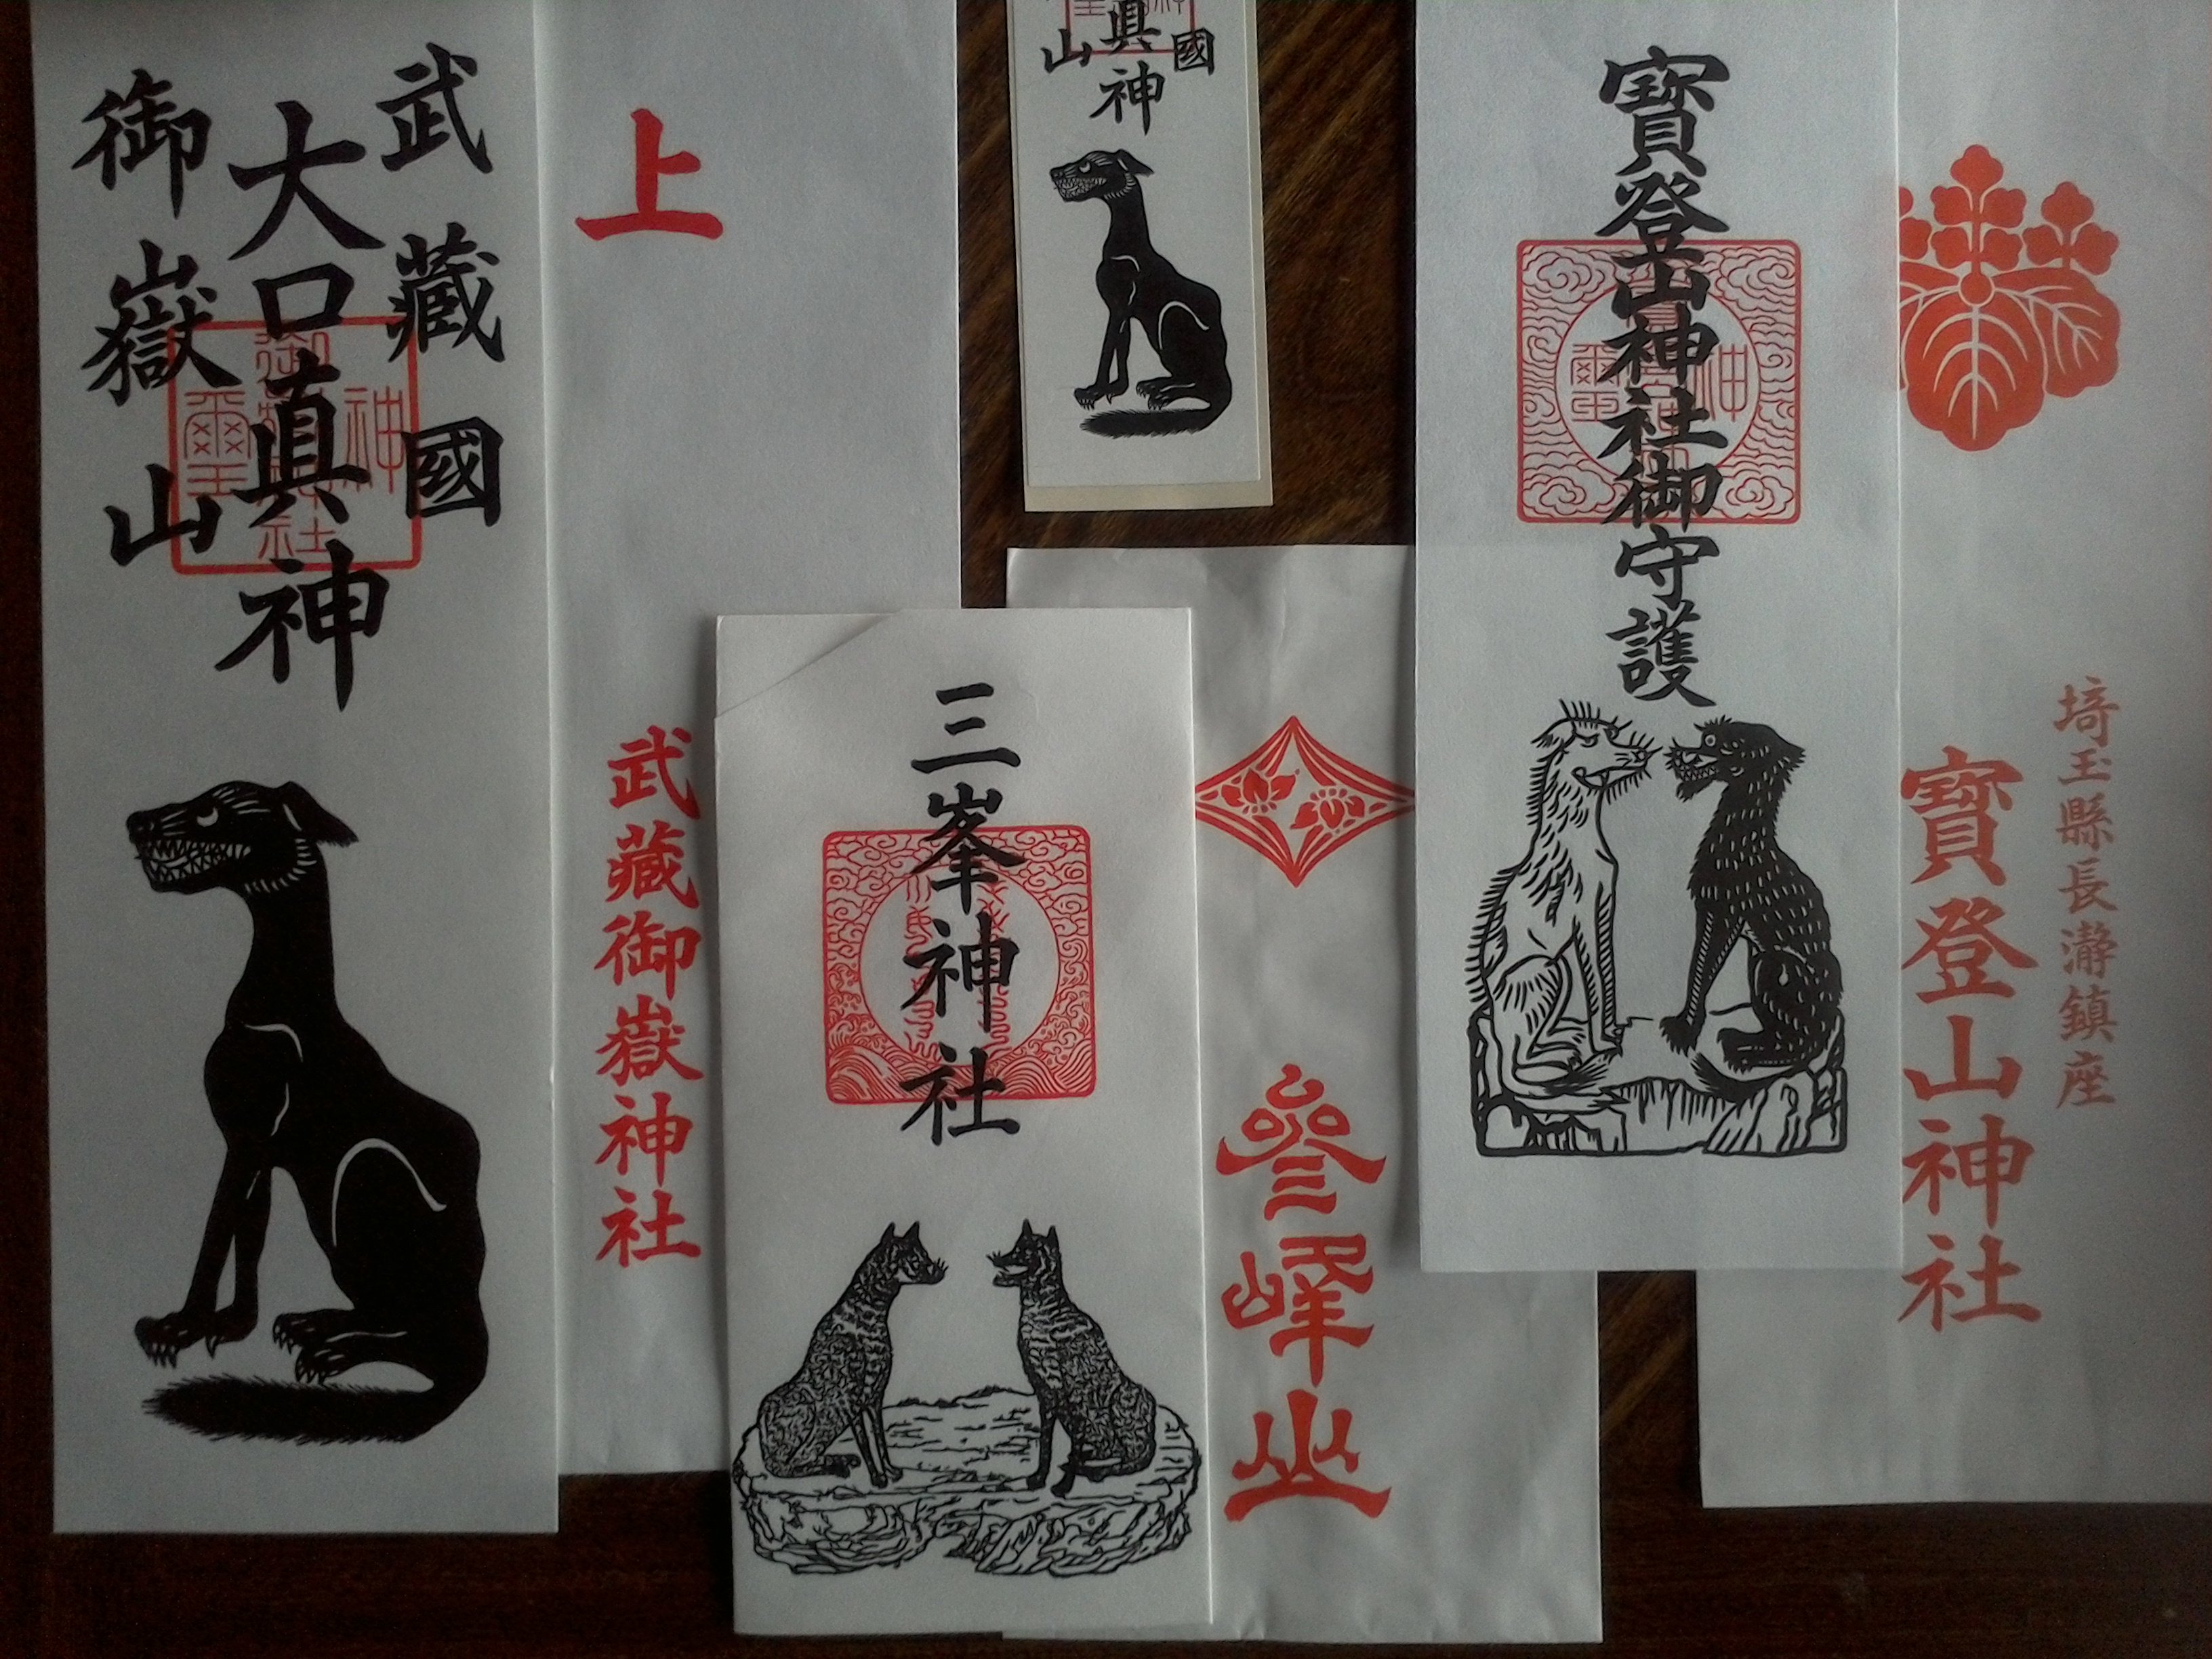 武藏國
大口真神
御嶽山
神璽
上
武藏御嶽神社
國
真神
山
三峯神社
參峰山
寶登山神社御守護
神璽
埼玉縣長瀞鎮座
寶登山神社